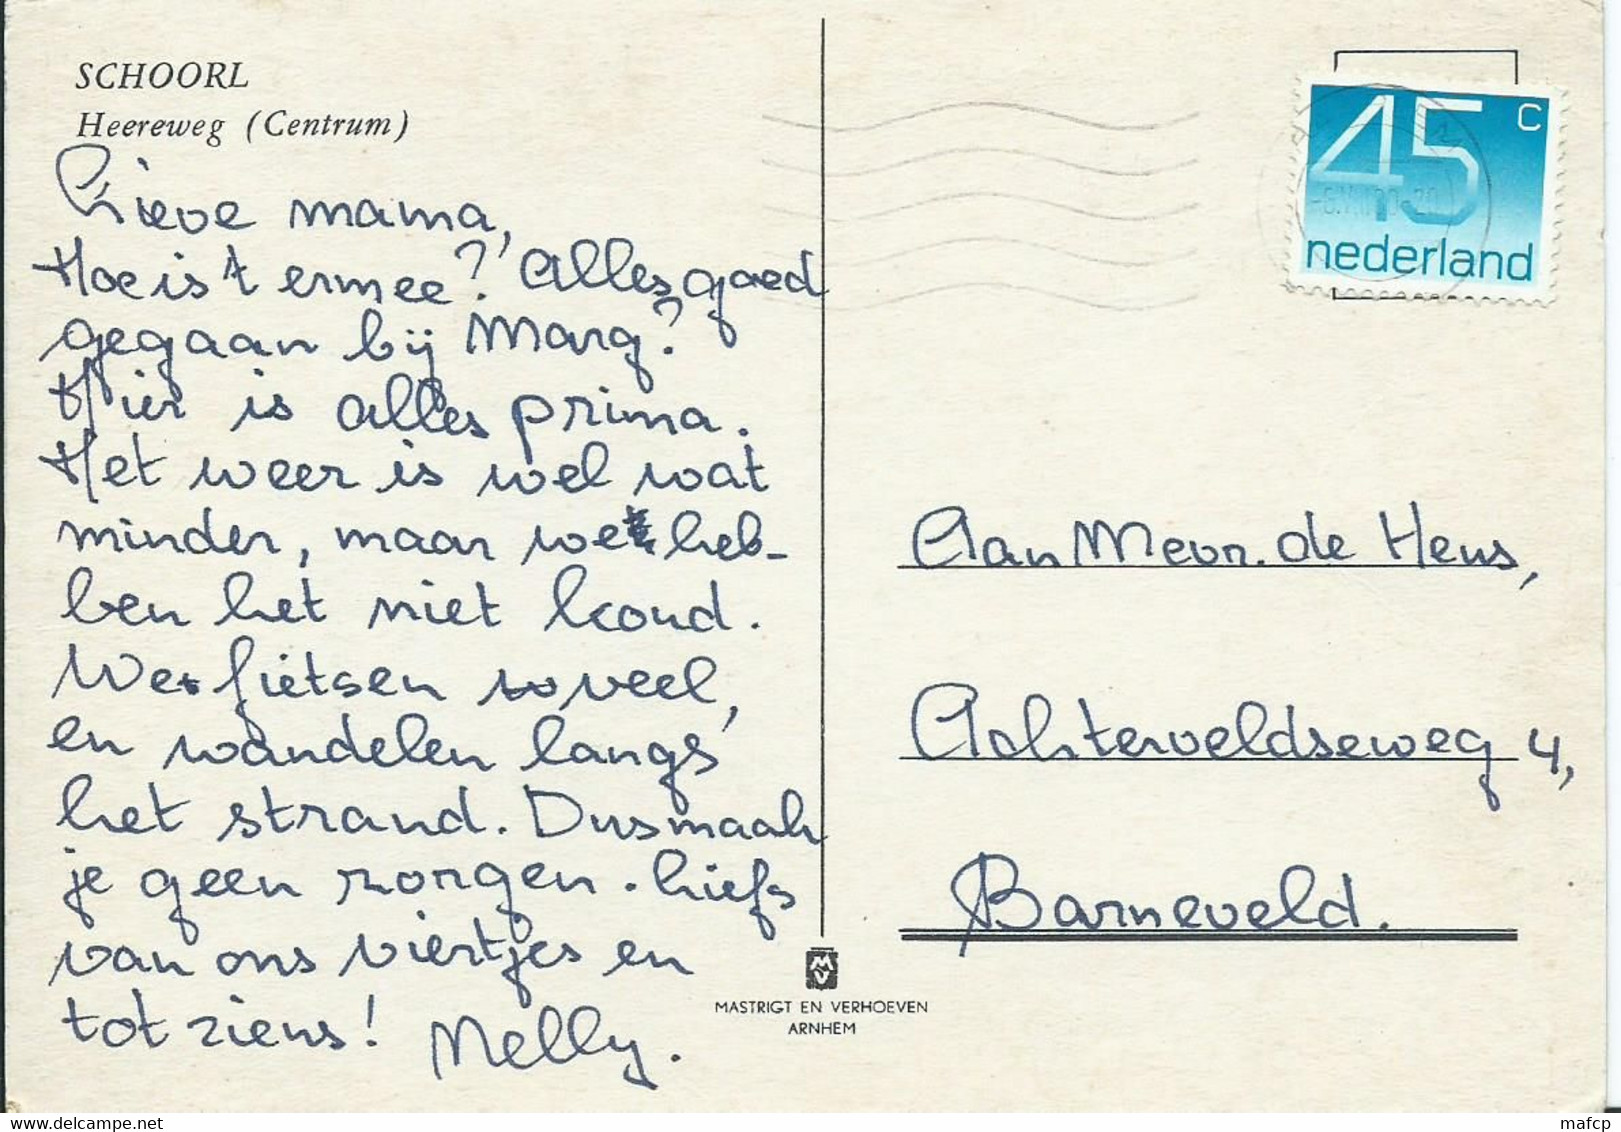 SCHOORL
Heereweg (Centrum)
Lieve mama,
Hoe is 't ermee? Alles goed
gegaan bij Marg?
Hier is alles prima.
Het weer is wel wat
minder, maar we heb-
ben het niet koud.
We fietsen veel,
en wandelen langs
het strand. Dus maak
je geen zorgen. Liefs
van ons viertjes en
tot ziens! Nelly.
45 c
nederland
Aan Mevr. de Heus,
Achterveldseweg 4,
Barneveld.
MV
MASTRIGT EN VERHOEVEN
ARNHEM
delcampe.net
mafcp